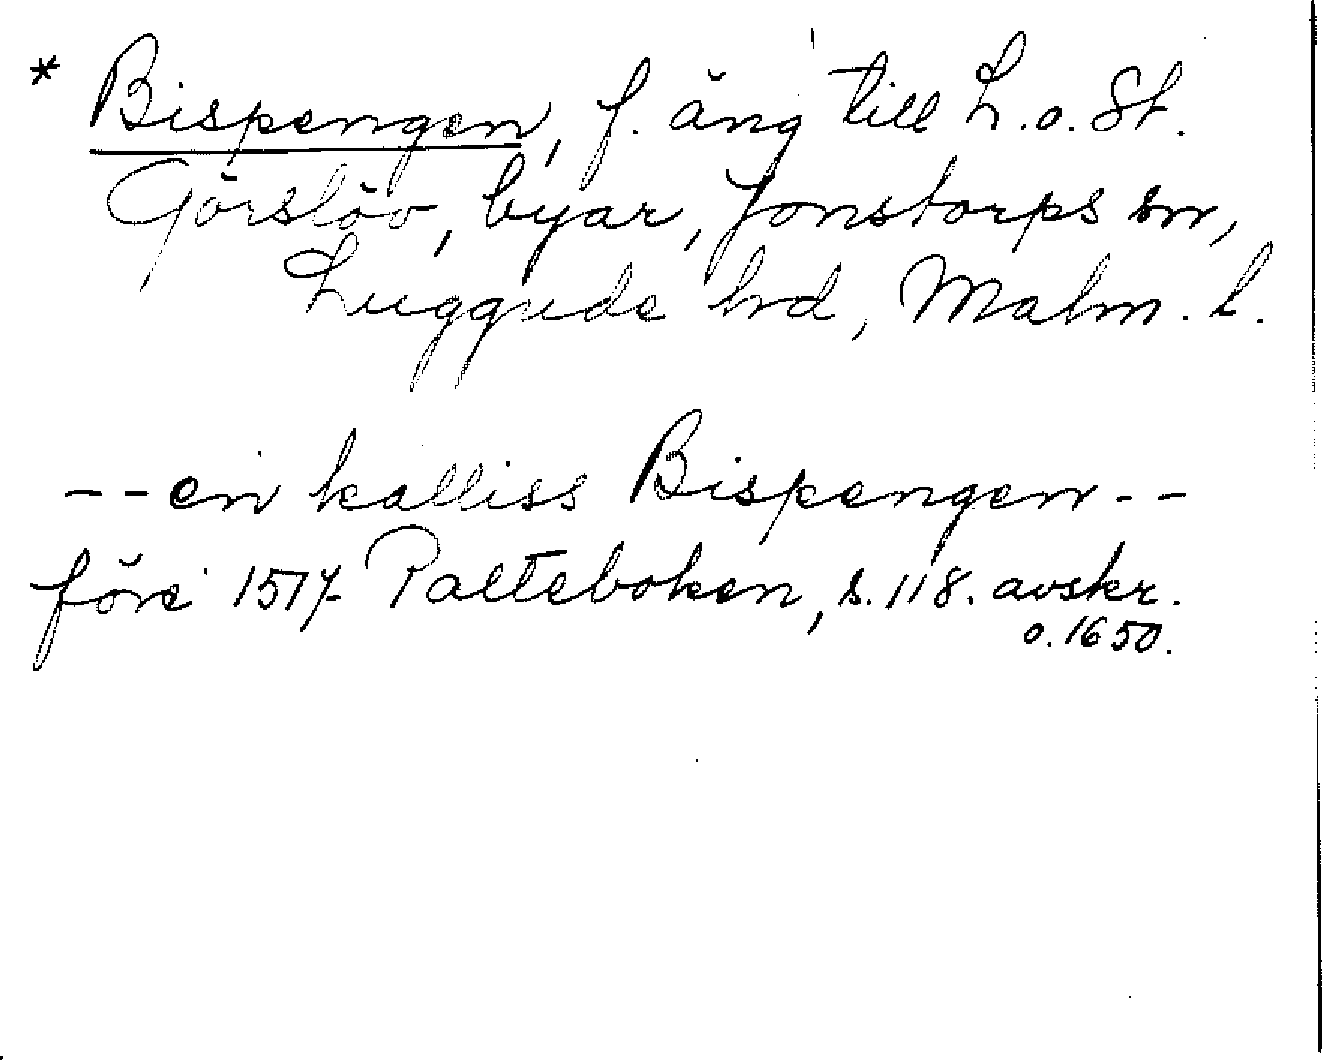 * Bispengen, f. äng till L. o. St.
Görslöv, byar, Jonstorps sn,
Luggude hd, Malm. l.
-- en kalliss Bispengen --
före 1517 Palteboken, s. 118. avskr.
o. 1650.